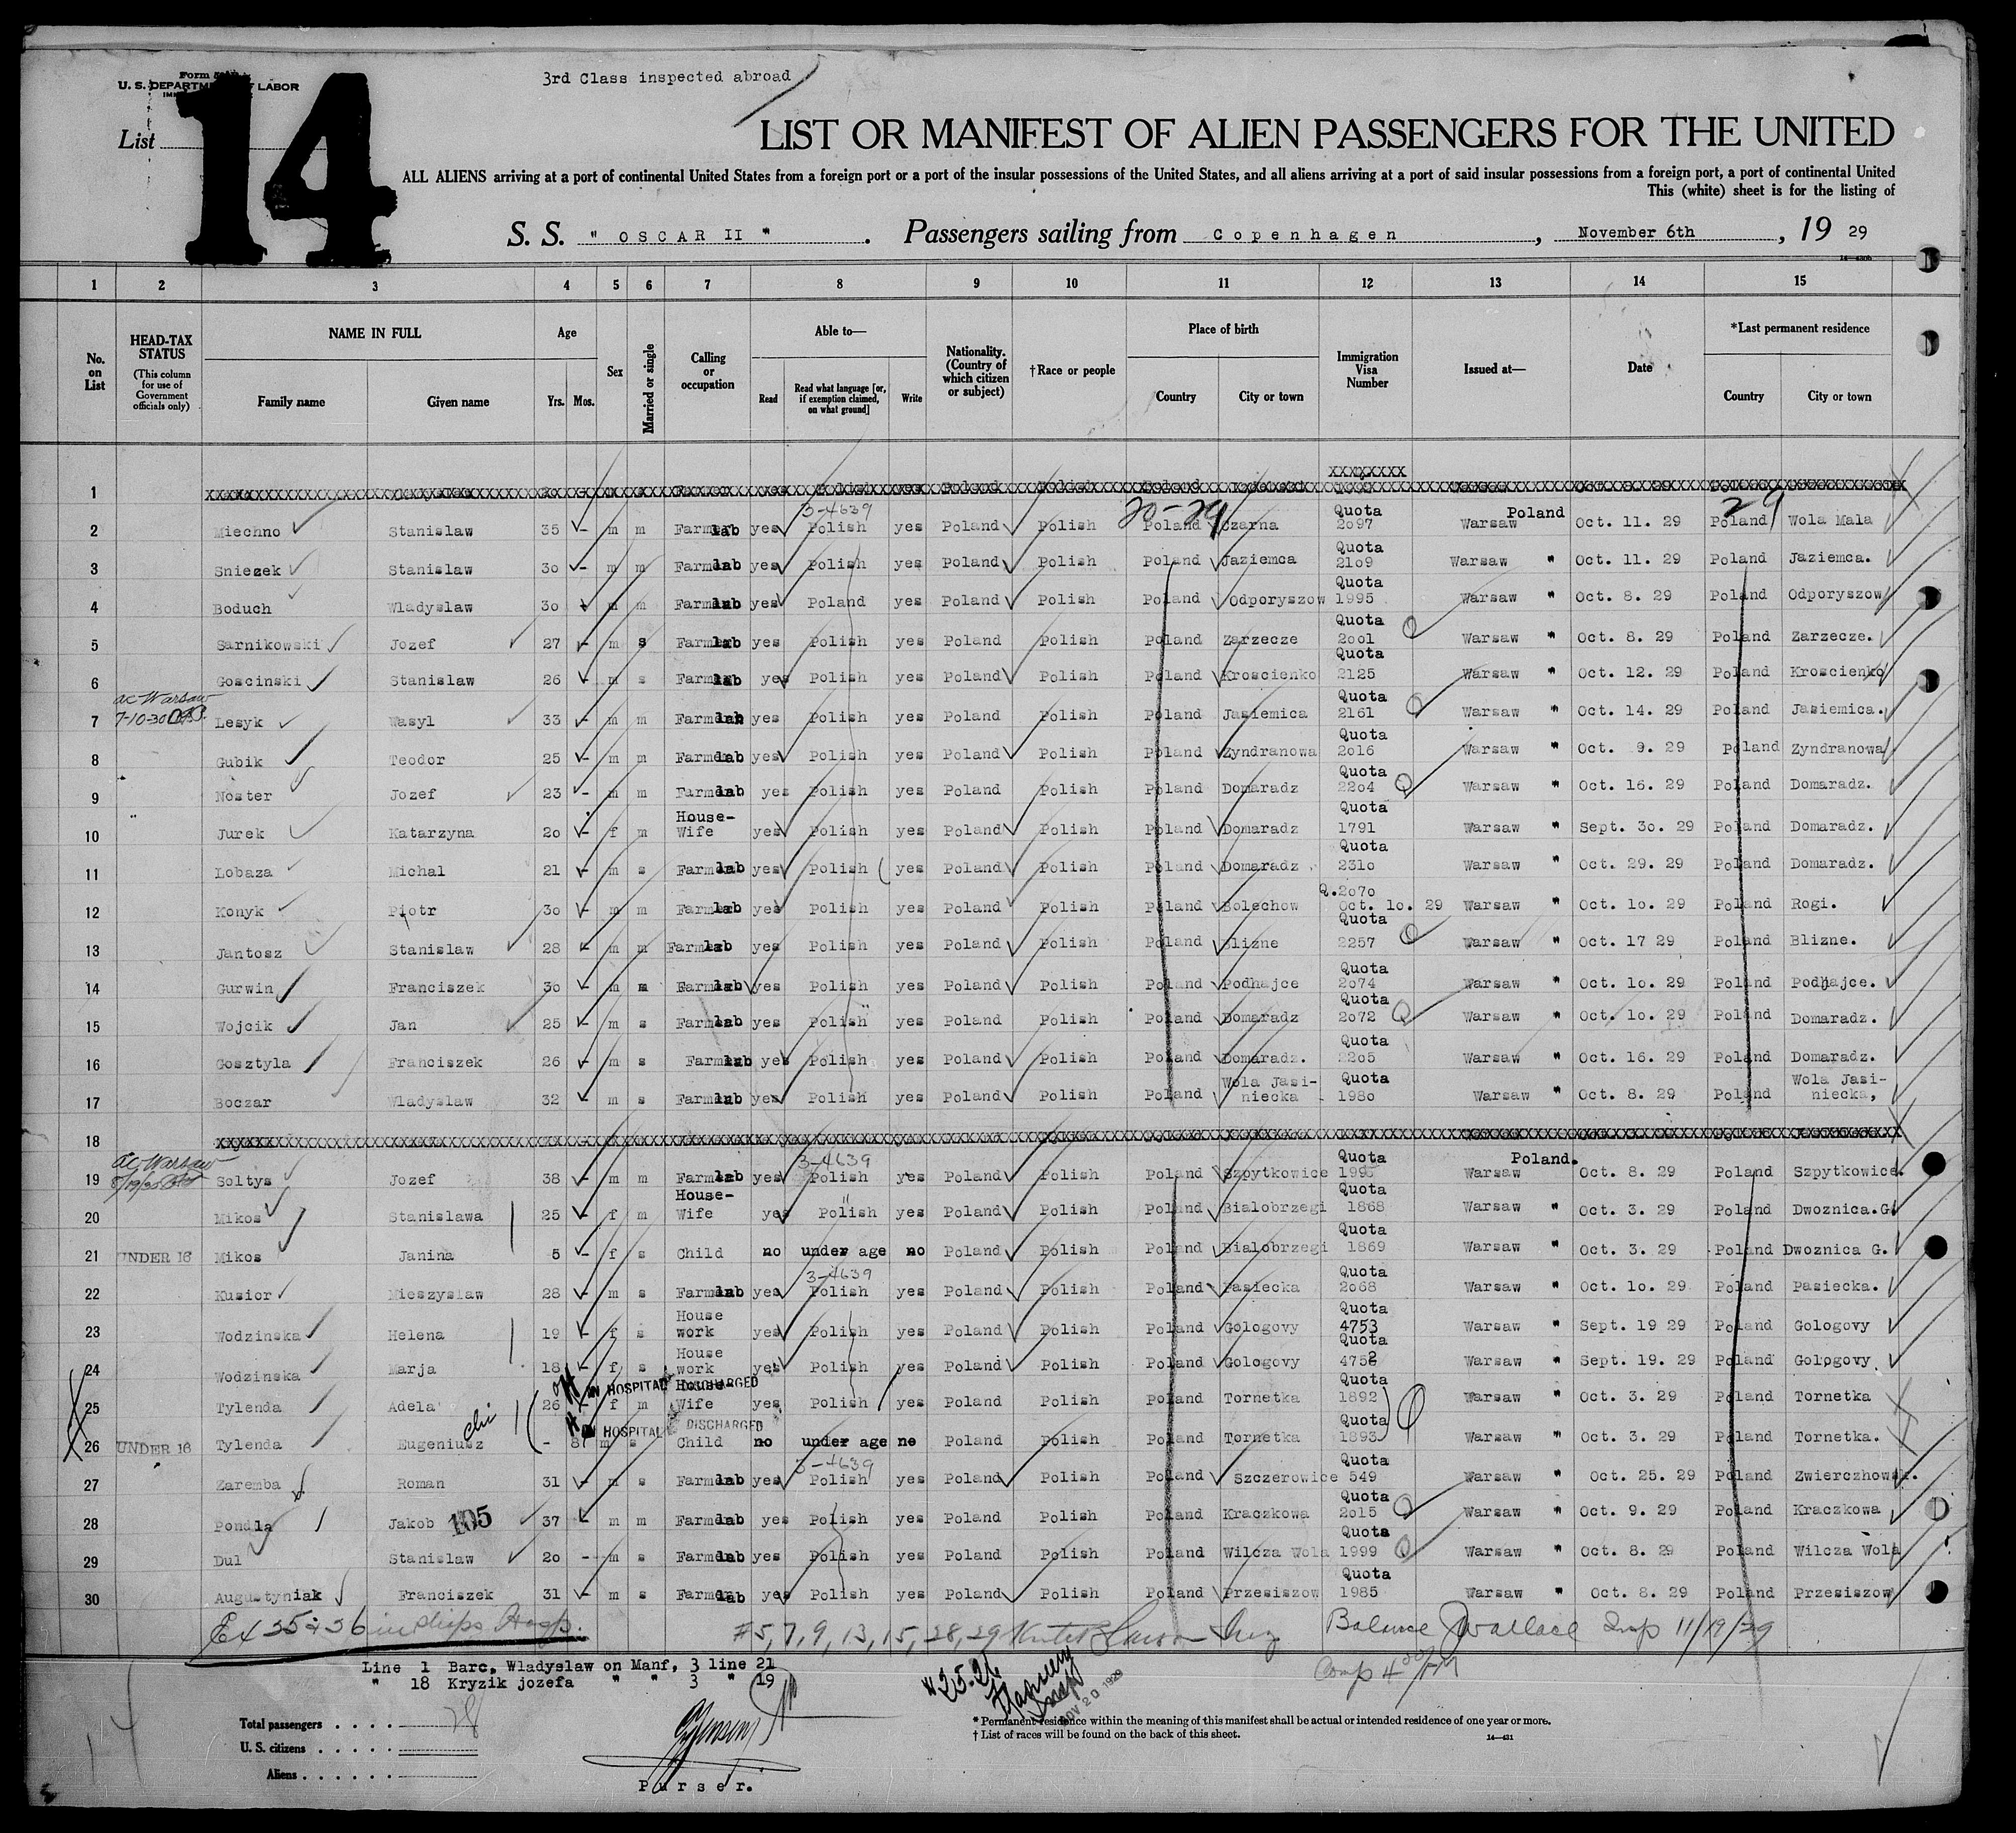 3rd Class inspected abroad
Form
U. S. DEPARTMENT OF LABOR
List
14
LIST OR MANIFEST OF ALIEN PASSENGERS FOR THE UNITED
ALL ALIENS arriving at a port of continental United States from a foreign port or a port of the insular possessions of the United States, and all aliens arriving at a port of said insular possessions from a foreign port, a port of continental United
This (white) sheet is for the listing of
S. S. " OSCAR II " . Passengers sailing from Copenhagen , November 6th , 19 29
1 2 3 4 5 6 7 8 9 10 11 12 13 14 15
No. on List
HEAD-TAX STATUS (This column for use of Government officials only)
NAME IN FULL Family name Given name
Age Yrs. Mos.
Sex
Married or single
Calling or occupation
Able to— Read Read what language [or, if exemption claimed, on what ground] Write
Nationality. (Country of which citizen or subject)
†Race or people
Place of birth Country City or town
Immigration Visa Number
Issued at—
Date
*Last permanent residence Country City or town
XXXXXXXX
1
3-4639 20-29 29
2 Miechno Stanislaw 35 - m m Farm lab yes Polish yes Poland Polish Poland Czarna Quota 2097 Warsaw Poland Oct. 11. 29 Poland Wola Mala
3 Sniezek Stanislaw 30 - m m Farm lab yes Polish yes Poland Polish Poland Jaziemca Quota 2109 Warsaw " Oct. 11. 29 Poland Jaziemca.
4 Boduch Wladyslaw 30 - m m Farm lab yes Poland yes Poland Polish Poland Odporyszow Quota 1995 Warsaw " Oct. 8. 29 Poland Odporyszow
5 Sarnikowski Jozef 27 - m s Farm lab yes Polish yes Poland Polish Poland Zarzecze Quota 2001 Warsaw " Oct. 8. 29 Poland Zarzecze.
6 Goscinski Stanislaw 26 - m s Farm lab yes Polish yes Poland Polish Poland Kroscienko Quota 2125 Warsaw " Oct. 12. 29 Poland Kroscienko
ac Warsaw
7-10-30
7 Lesyk Wasyl 33 - m m Farm lab yes Polish yes Poland Polish Poland Jasiemica Quota 2161 Warsaw " Oct. 14. 29 Poland Jasiemica.
8 Gubik Teodor 25 - m m Farm lab yes Polish yes Poland Polish Poland Zyndranowa Quota 2016 Warsaw " Oct. 9. 29 Poland Zyndranowa
9 Noster Jozef 23 - m m Farm lab yes Polish yes Poland Polish Poland Domaradz Quota 2204 Warsaw " Oct. 16. 29 Poland Domaradz.
10 Jurek Katarzyna 20 - f m House-Wife yes Polish yes Poland Polish Poland Domaradz Quota 1791 Warsaw " Sept. 30. 29 Poland Domaradz.
11 Lobaza Michal 21 - m s Farm lab yes Polish yes Poland Polish Poland Domaradz Quota 2310 Warsaw " Oct. 29. 29 Poland Domaradz.
12 Konyk Piotr 30 - m m Farm lab yes Polish yes Poland Polish Poland Bolechow Q.2070 Oct. 10. 29 Warsaw " Oct. 10. 29 Poland Rogi.
13 Jantosz Stanislaw 28 - m m Farm lab yes Polish yes Poland Polish Poland Blizne Quota 2257 Warsaw " Oct. 17 29 Poland Blizne.
14 Gurwin Franciszek 30 - m m Farm lab yes Polish yes Poland Polish Poland Podhajce Quota 2074 Warsaw " Oct. 10. 29 Poland Podhajce.
15 Wojcik Jan 25 - m s Farm lab yes Polish yes Poland Polish Poland Domaradz Quota 2072 Warsaw " Oct. 10. 29 Poland Domaradz.
16 Gosztyla Franciszek 26 - m s Farm lab yes Polish yes Poland Polish Poland Domaradz. Quota 2205 Warsaw " Oct. 16. 29 Poland Domaradz.
17 Boczar Wladyslaw 32 m s Farm lab yes Polish yes Poland Polish Poland Wola Jasi-niecka Quota 1980 Warsaw " Oct. 8. 29 Poland Wola Jasi-niecka,
18
ac Warsaw
3-4639
19 Soltys Jozef 38 - m m Farm lab yes Polish yes Poland Polish Poland Szpytkowice Quota Warsaw Poland. Oct. 8. 29 Poland Szpytkowice.
20 Mikos Stanislawa 25 - f m House-Wife yes Polish yes Poland Polish Poland Bialobrzegi Quota 1868 Warsaw " Oct. 3. 29 Poland Dwoznica.G.
21 UNDER 16 Mikos Janina 5 - f s Child no under age no Poland Polish Poland Bialobrzegi Quota 1869 Warsaw " Oct. 3. 29 Poland Dwoznica G.
3-4639
22 Kusior Mieszyslaw 28 - m s Farm lab yes Polish yes Poland Polish Poland Pasiecka Quota 2068 Warsaw " Oct. 10. 29 Poland Pasiecka.
23 Wodzinska Helena 19 - f s House work yes Polish yes Poland Polish Poland Gologovy Quota 4753 Warsaw " Sept. 19 29 Poland Gologovy
24 Wodzinska Marja 18 - f s House work yes Polish yes Poland Polish Poland Gologovy Quota 4752 Warsaw " Sept. 19. 29 Poland Gologovy
IN HOSPITAL DISCHARGED
25 Tylenda Adela 26 - f m House Wife yes Polish yes Poland Polish Poland Tornetka Quota 1892 Warsaw " Oct. 3. 29 Poland Tornetka
IN HOSPITAL DISCHARGED
26 UNDER 16 Tylenda Eugeniusz - 8 m s Child no under age no Poland Polish Poland Tornetka Quota 1893 Warsaw " Oct. 3. 29 Poland Tornetka.
3-4639
27 Zaremba Roman 31 - m s Farm lab yes Polish yes Poland Polish Poland Szczerowice Quota 549 Warsaw " Oct. 25. 29 Poland
28 Pondla Jakob 105 37 - m m Farm lab yes Polish yes Poland Polish Poland Kraczkowa Quota 2015 Warsaw " Oct. 9. 29 Poland Kraczkowa
29 Dul Stanislaw 20 - m s Farm lab yes Polish yes Poland Polish Poland Wilcza Wola Quota 1999 Warsaw " Oct. 8. 29 Poland Wilcza Wola
30 Augustyniak Franciszek 31 - m s Farm lab yes Polish yes Poland Polish Poland Przesiszow Quota 1985 Warsaw " Oct. 8. 29 Poland Przesiszow
in Ships Hosp. #5, 7, 9, 13, 15, 28, 29 Balance Wallace Insp 11/19/29
Line 1 Barc, Wladyslaw on Manf, 3 line 21
" 18 Kryzik jozefa " " 3 " 19
#25-26
NOV 20 1929
Comp 4
Total passengers . . . . 28
U. S. citizens . . . . .
Aliens . . . . . .
Purser.
* Permanent residence within the meaning of this manifest shall be actual or intended residence of one year or more.
† List of races will be found on the back of this sheet.
14—431
14